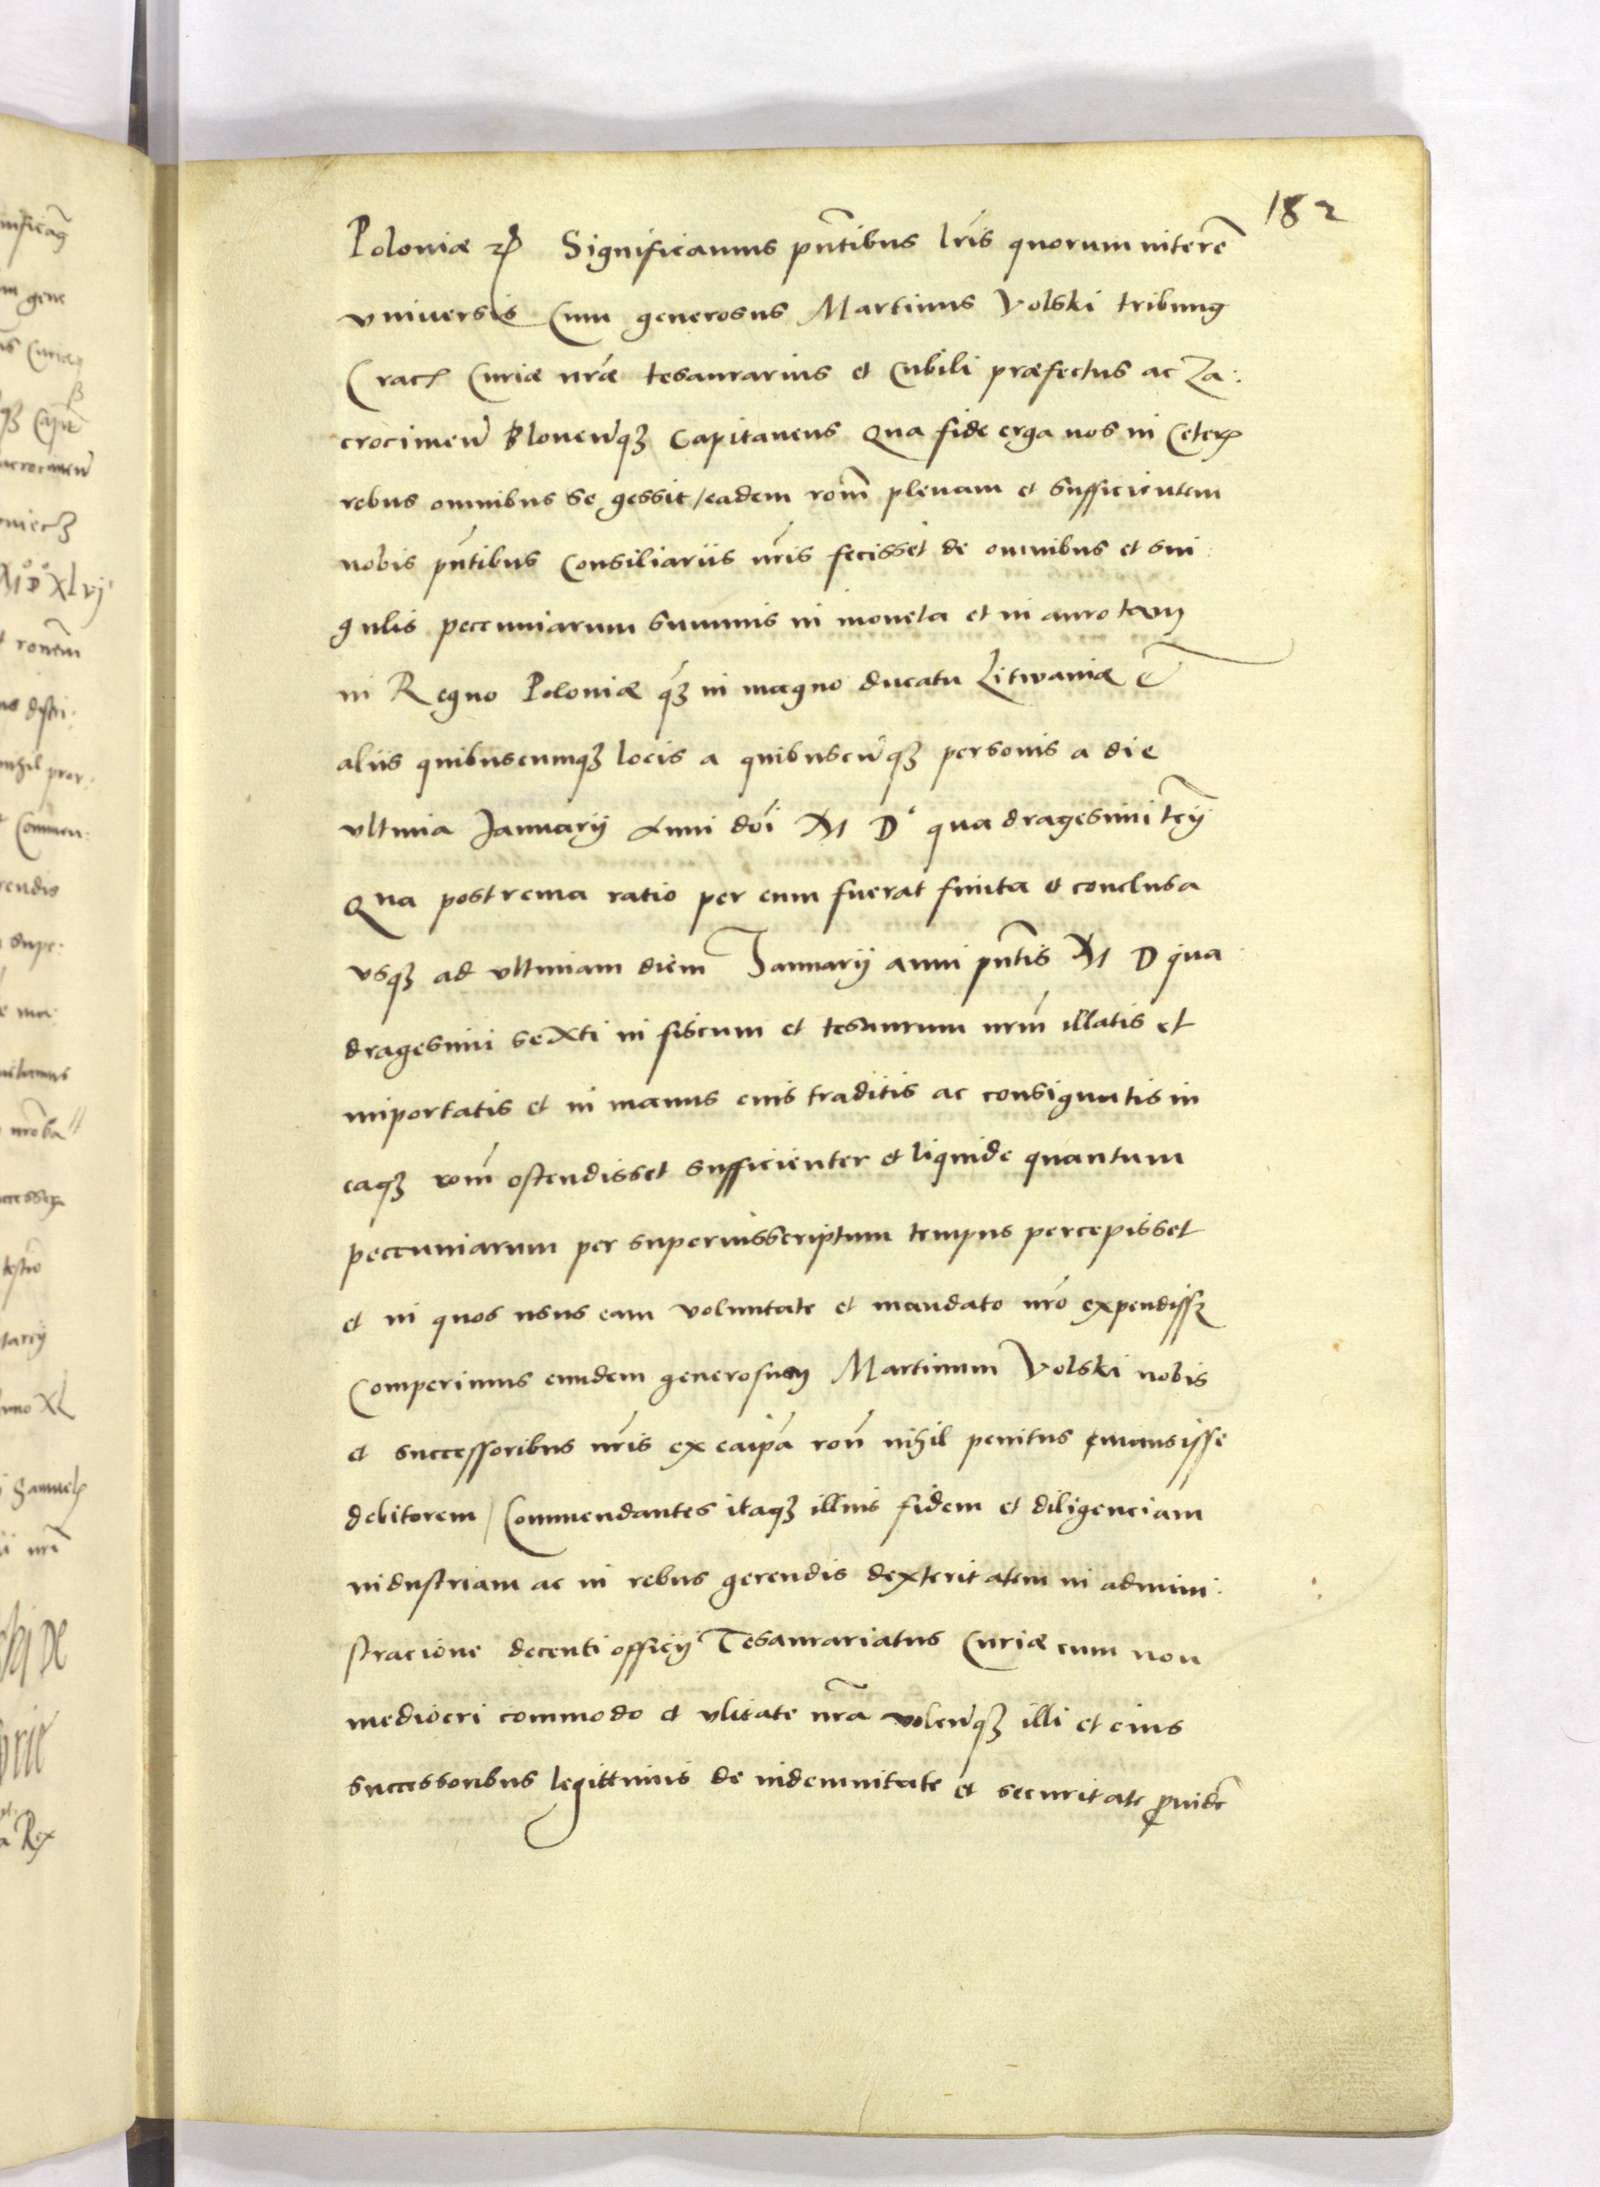 182
Poloniæ etc Significamus pn̄tibus lr̄is quorum interē
vniuersis Cum generosus Martinus Volski tribunꝰ
Crac̄ Curiæ nr̄æ tesaurarius et Cubili præfectus ac Za:
crocimeñ Bloneñqꝫ Capitaneus Qua fide erga nos in Ceterꝭ
rebus omnibus se gessit / eadem rōm̄ plenam et sufficientem
nobis pn̄tibus Consiliariis nr̄is fecisset de omnibus et sin:
gulis peccuniarum summis in moneta et in auro tam
in Regno Poloniæ q̄ꝫ in magno ducatu Litwaniæ ē
aliis quibuscumqꝫ locis a quibuscūqꝫ personis a die
vltima Januarij Anni dōi M D° quadragesimi tc̄ij
Qua postrema ratio per eum fuerat finita et conclusa
vsqꝫ ad vltimam diem Januarij anni pn̄tis M D qua
dragesimi sexti in fiscum et tesaurum nrm̄ illatis et
importatis et in manus eius traditis ac consignatis in
eaqꝫ rōm̄ ostendisset sufficienter et liquide quantum
peccuniarum per superinsscriptum tempus percepisset
et in quos usus eam voluntate et mandato nr̄o expendissꝫ
Comperimus eundem generosum Martinum Volski nobis
et successoribus nr̄is ex eaip̄a rōn̄ nihil penitus remansisse
debitorem / Commendantes itaqꝫ illius fidem et diligenciam
industriam ac in rebus gerendis dexteritatem in admini:
stracione decenti officij Tesaurariatus Curiæ cum non
mediocri commodo et vlitate nr̄a voleñqꝫ illi et eius
successoribus legittimis de indemnitate et securitate ꝓuidē